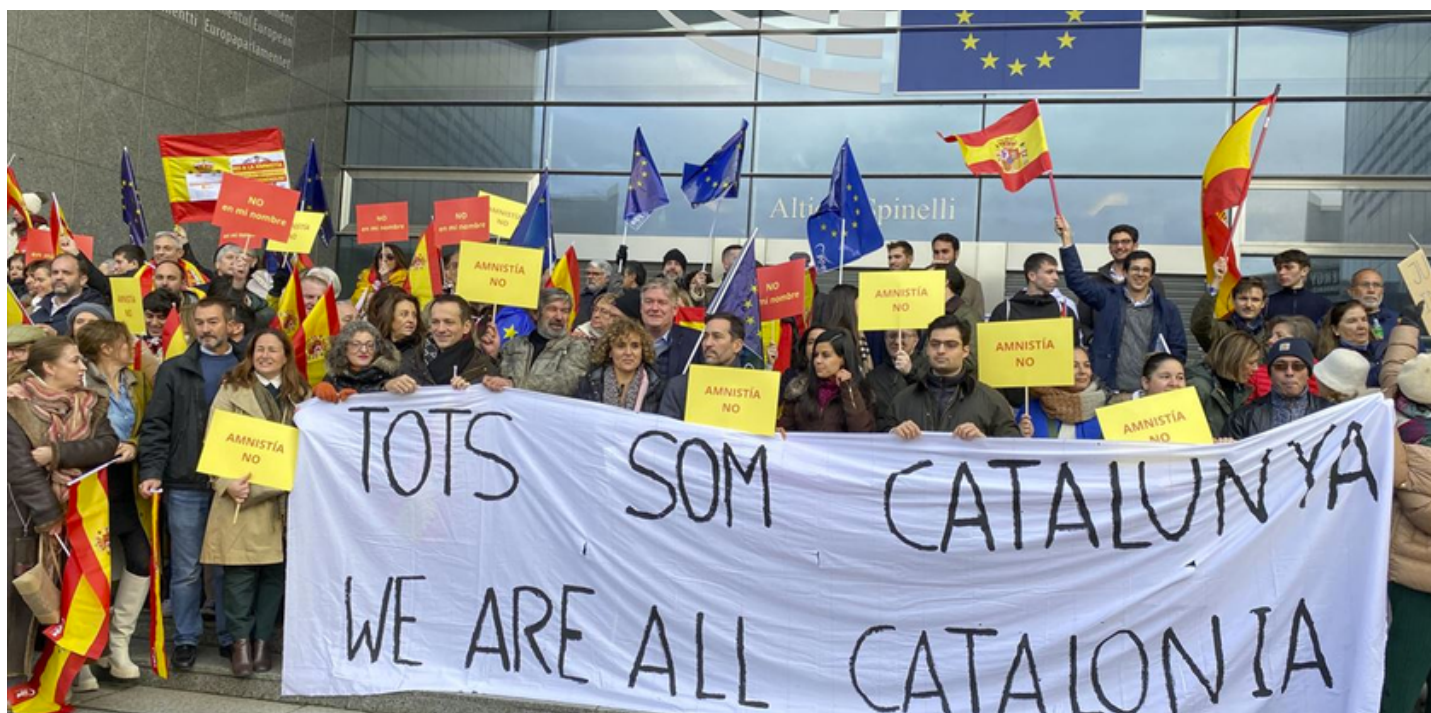 Europaparlamentet
NO A LA AMNISTÍA
NO
en mi nombre
NO
en mi nombre
NO
en mi nombre
AMNISTÍA
NO
Altiero Spinelli
NO
en mi nombre
AMNISTÍA
NO
AMNISTÍA
NO
AMNISTÍA
NO
AMNISTÍA
NO
AMNISTÍA
NO
TOTS SOM CATALUNYA
WE ARE ALL CATALONIA